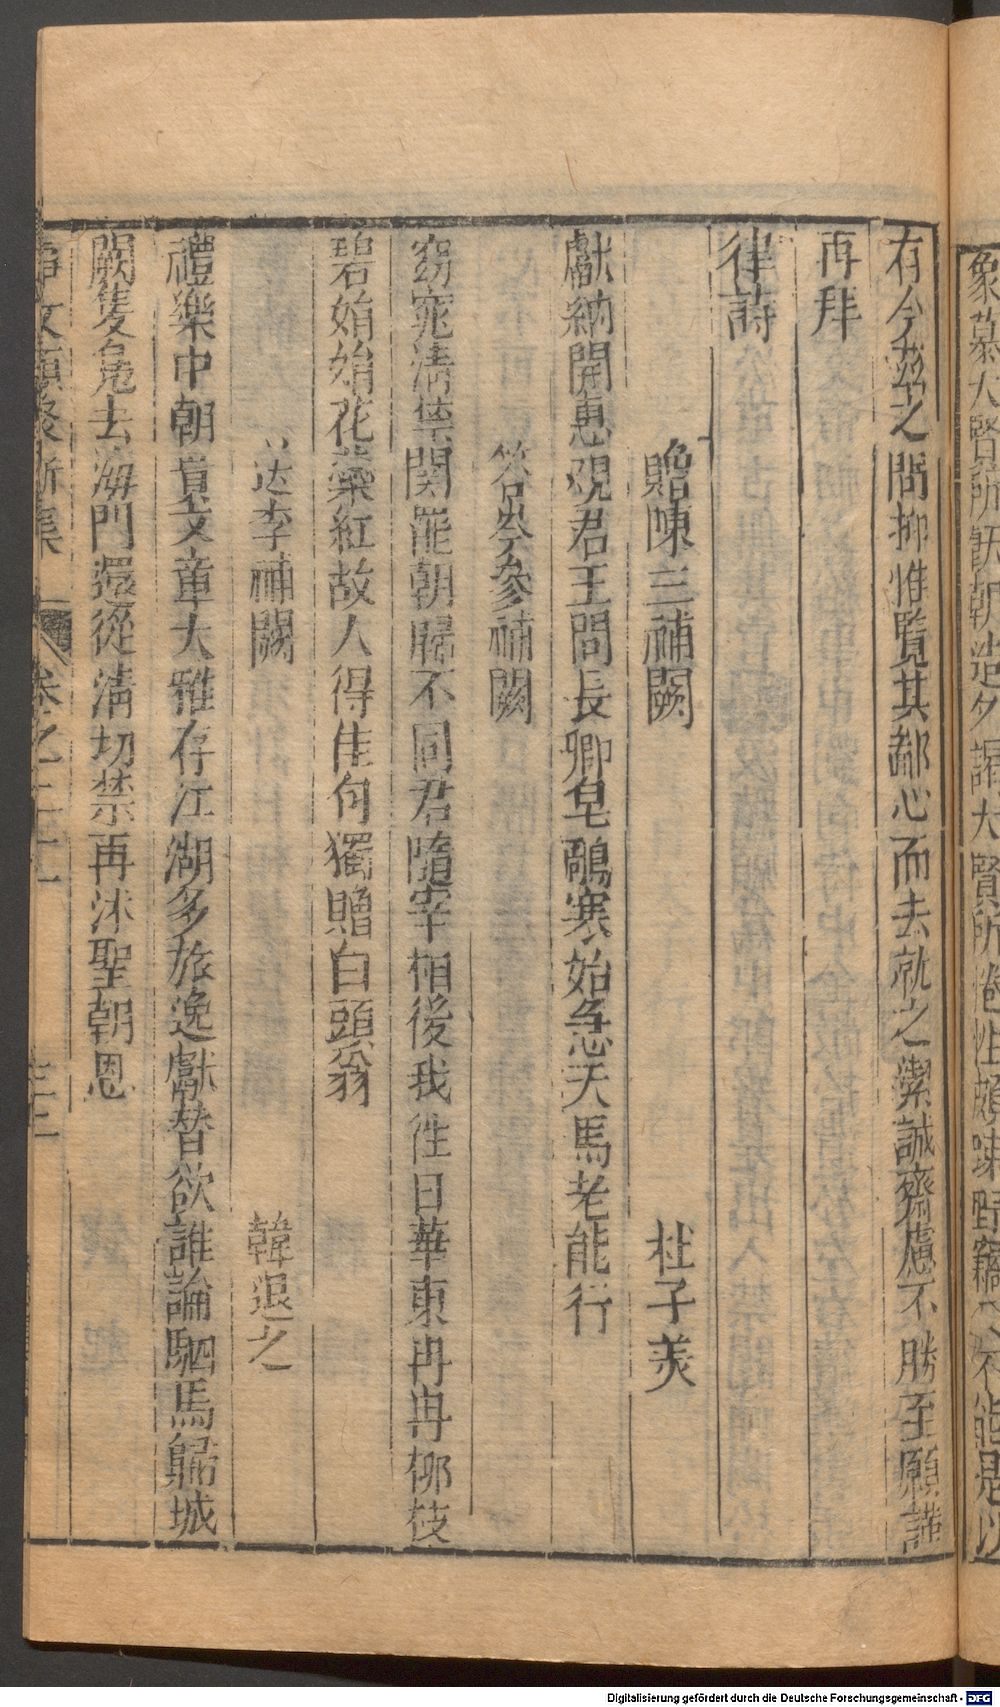 象慕大賢所
有今茲之問抑惟覧其鄙心而去就之潔誠齋慮不勝至願謹
再拜
律詩
贈陳二補闕 杜子美
獻納開惠覌君王問長卿皂鵰寒始急天馬老能行
答岑參補闕
窈窕清禁闥罷朝歸不同君隨宰相後我徃日華東冉冉柳枝
碧娟娟花蘂紅故人得佳句獨贈白頭翁
送李補闕 韓退之
禮樂中朝貴文章大雅存江湖多旅逸獻替欲誰論駟馬歸城
闕隻鳧去海門還從清切禁再沐聖朝恩
事文類聚新集 卷之二十一
Digitalisierung gefördert durch die Deutsche Forschungsgemeinschaft - DFG